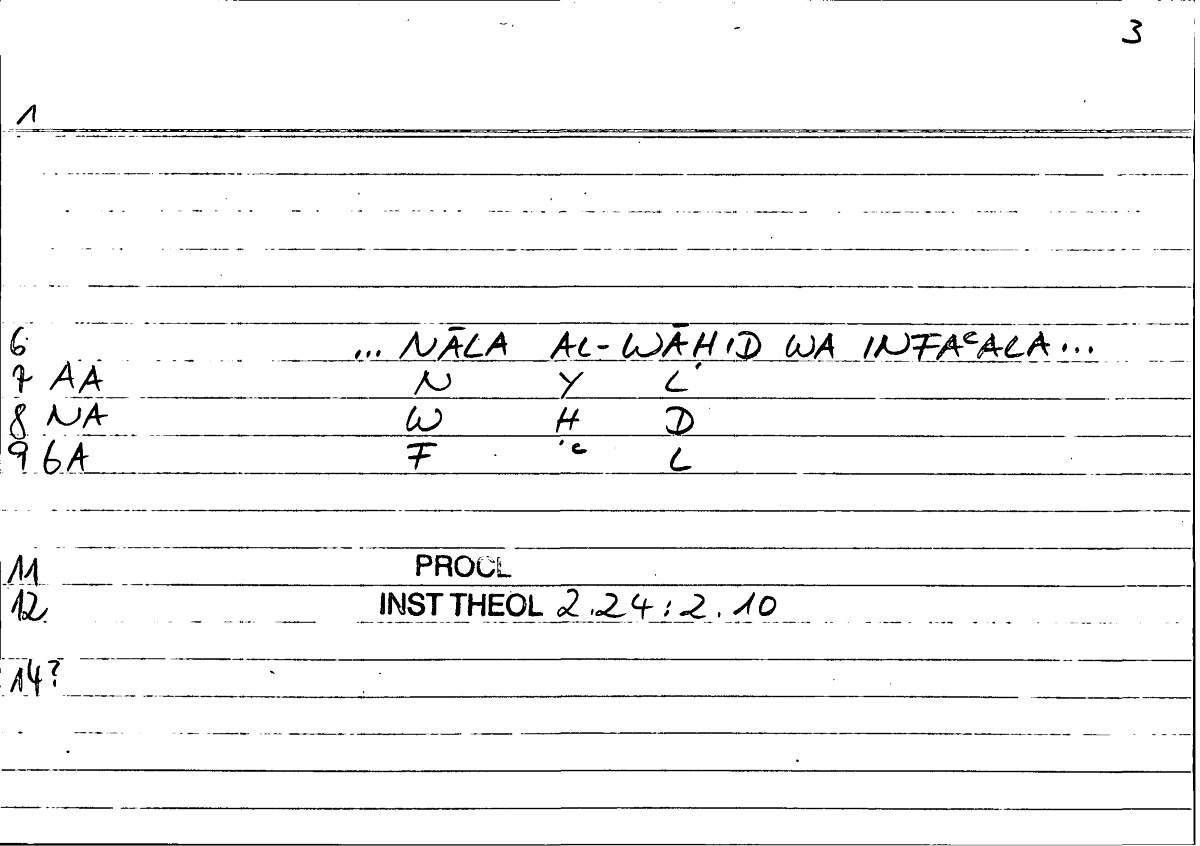 3
1
6 ... NĀLA AL-WĀḤID WA INFAᶜALA...
7 AA N Y L
8 NA W Ḥ D
9 6A F ᶜ L
11 PROCL
12 INST THEOL 2.24:2.10
14?